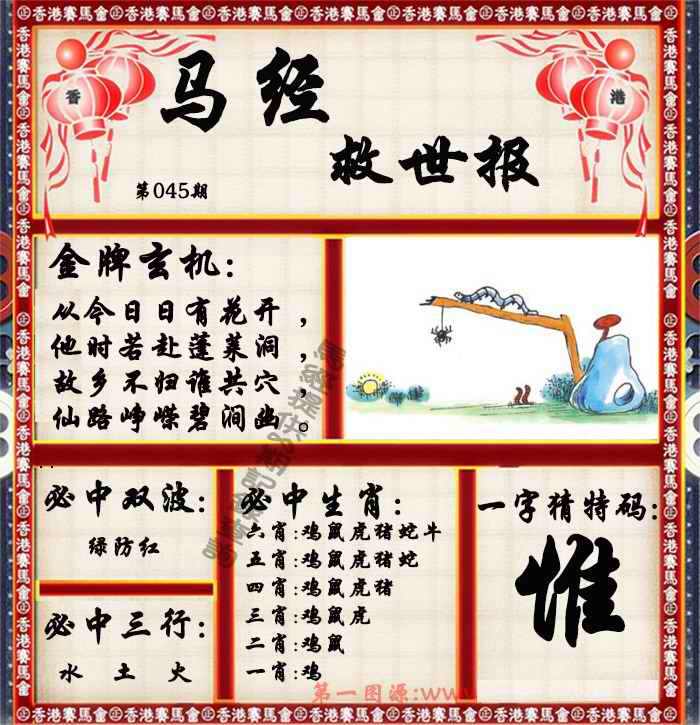 香港賽馬會
香 港
马经
救世报
第045期
金牌玄机:
从今日日有花开，
他时若赴蓬莱洞，
故乡不归谁共穴，
仙路峥嵘碧涧幽。
必中双波:
绿防红
必中三行:
水 土 火
必中生肖:
六肖:鸡鼠虎猪蛇牛
五肖:鸡鼠虎猪蛇
四肖:鸡鼠虎猪
三肖:鸡鼠虎
二肖:鸡鼠
一肖:鸡
一字猜特码:
惟
第一图源:www